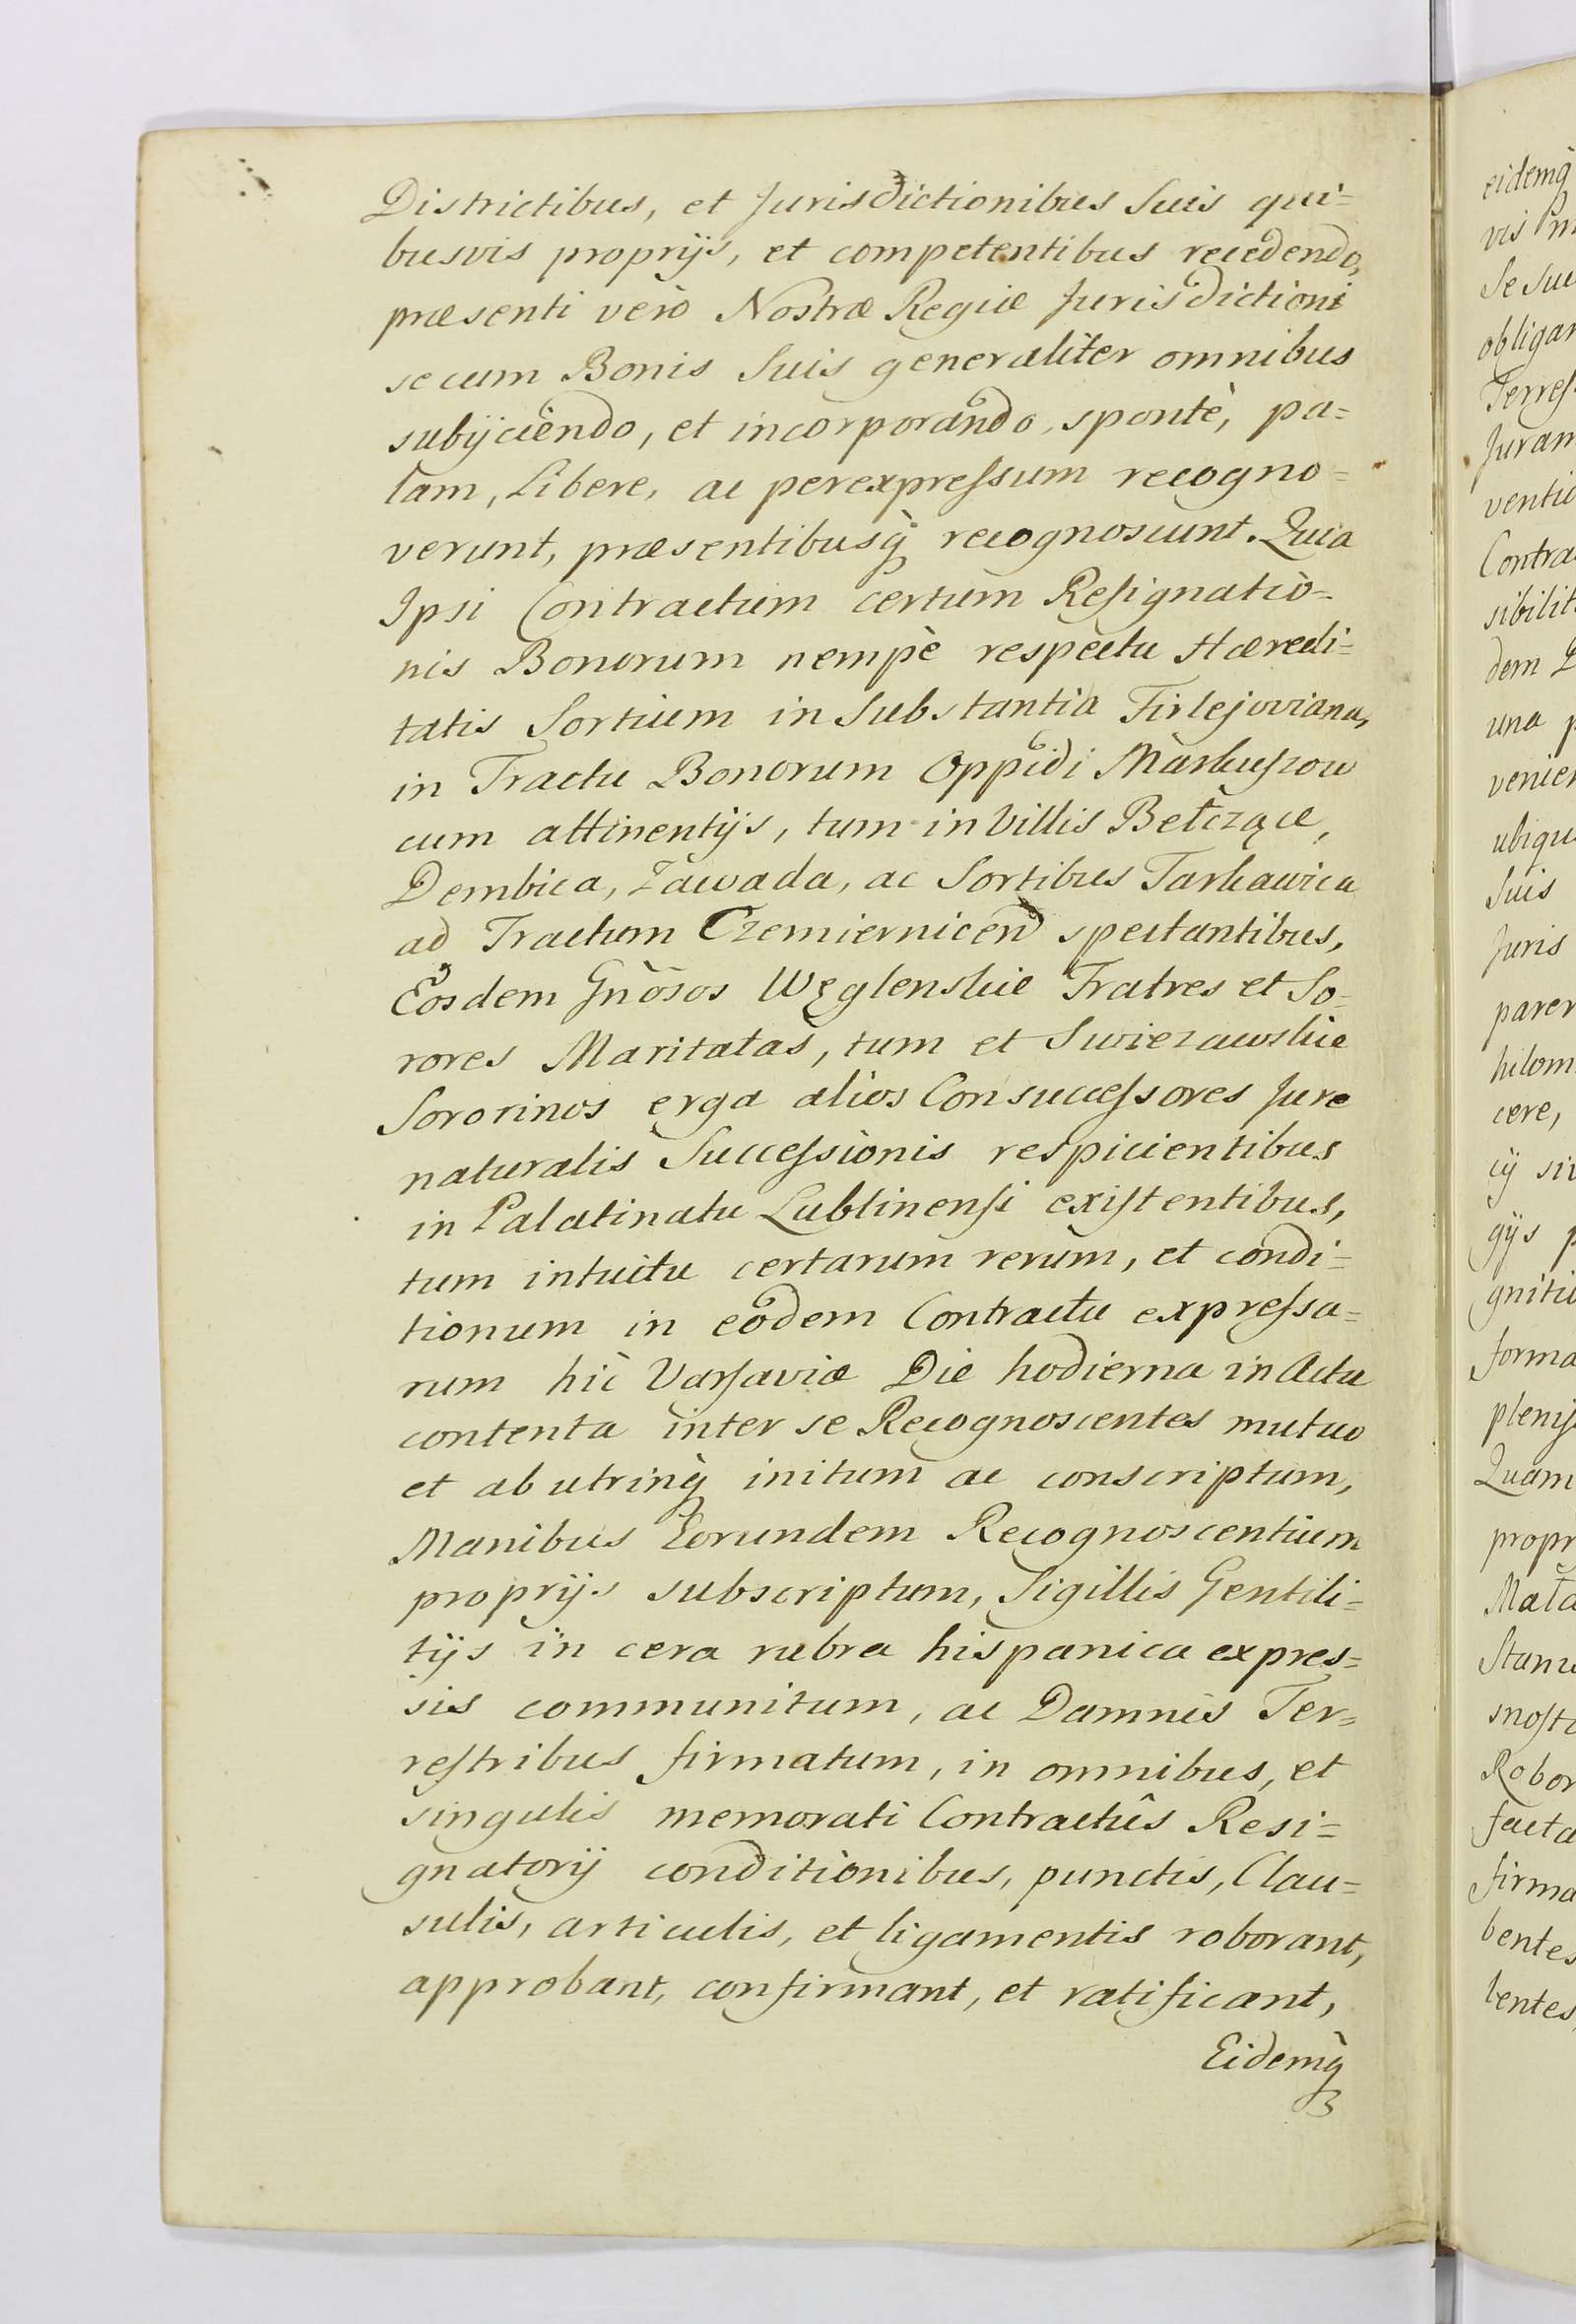 Districtibus, et Jurisdictionibus Suis qui=
busvis proprijs, et competentibus recedendo,
præsenti verò Nostræ Regiæ Jurisdictioni
secum Bonis Suis generaliter omnibus
subijciendo, et incorporando, spontè, pa=
lam, Libere, ac perexpreſsum recogno=
verunt, præsentibusq̀ recognoscunt. Quia
Ipsi Contractum certum Reſignatio=
nis Bonorum nempè respectu Hæredi=
tatis Sortium in Substantia Firlejoviana,
in Tractu Bonorum Oppidi Markuſzow
cum attinentijs, tum in Villis Bełcząc,
Dembica, Zawada, ac Sortibus Tarkawica
ad Tractum Czemiernicen̄ spectantibus,
Eosdem Gn̄osos Węglenskie Fratres et So=
rores Maritatas, tum et Swiezawskie
Sororinos erga alios Consucceſsores Jure
naturalis Succeſsionis respicientibus
in Palatinatu Lublinenſi exiſtentibus,
tum intuitu certarum rerum, et condi=
tionum in eodem Contractu expreſsa=
rum hìc Varſaviæ Die hodierna in Actu
contenta inter se Recognoscentes mutuo
et ab utrinq̀ initum ac conscriptum,
Manibus Eorundem Recognoscentium
proprijs subscriptum, Sigillis Gentili=
tijs in cera rubra hispanica expres=
sis communitum, ac Damnis Ter=
reſtribus firmatum, in omnibus, et
singulis memorati Contractûs Resi=
gnatorij conditionibus, punctis, Clau=
sulis, articulis, et ligamentis roborant,
approbant, confirmant, et ratificant,
Eidemq̀
eidemq̀
vis
Se Sue
obligar
Terreſ
Juram
ventio
Contra
sibilit
dem
una
venier
ubiqu
Suis
Juris
parer
hilom
cere,
gnitio
forma
Quam
propr
Robor
facta
firma
bentes